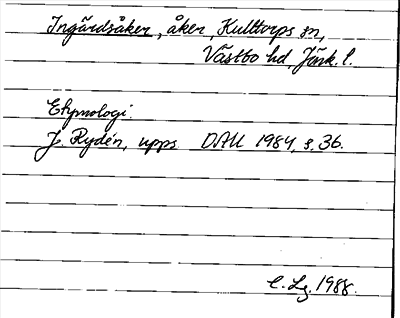 Ingårdsåker, åker, Kulltorps sn,
Västbo hd, Jönk. l.
Etymologi.
J. Rydén, upps. DAU 1984, s. 36.
C. Lg. 1988.